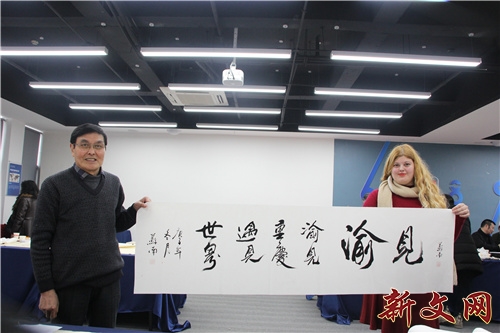 見渝
渝見
重慶
遇見
世界
新文网